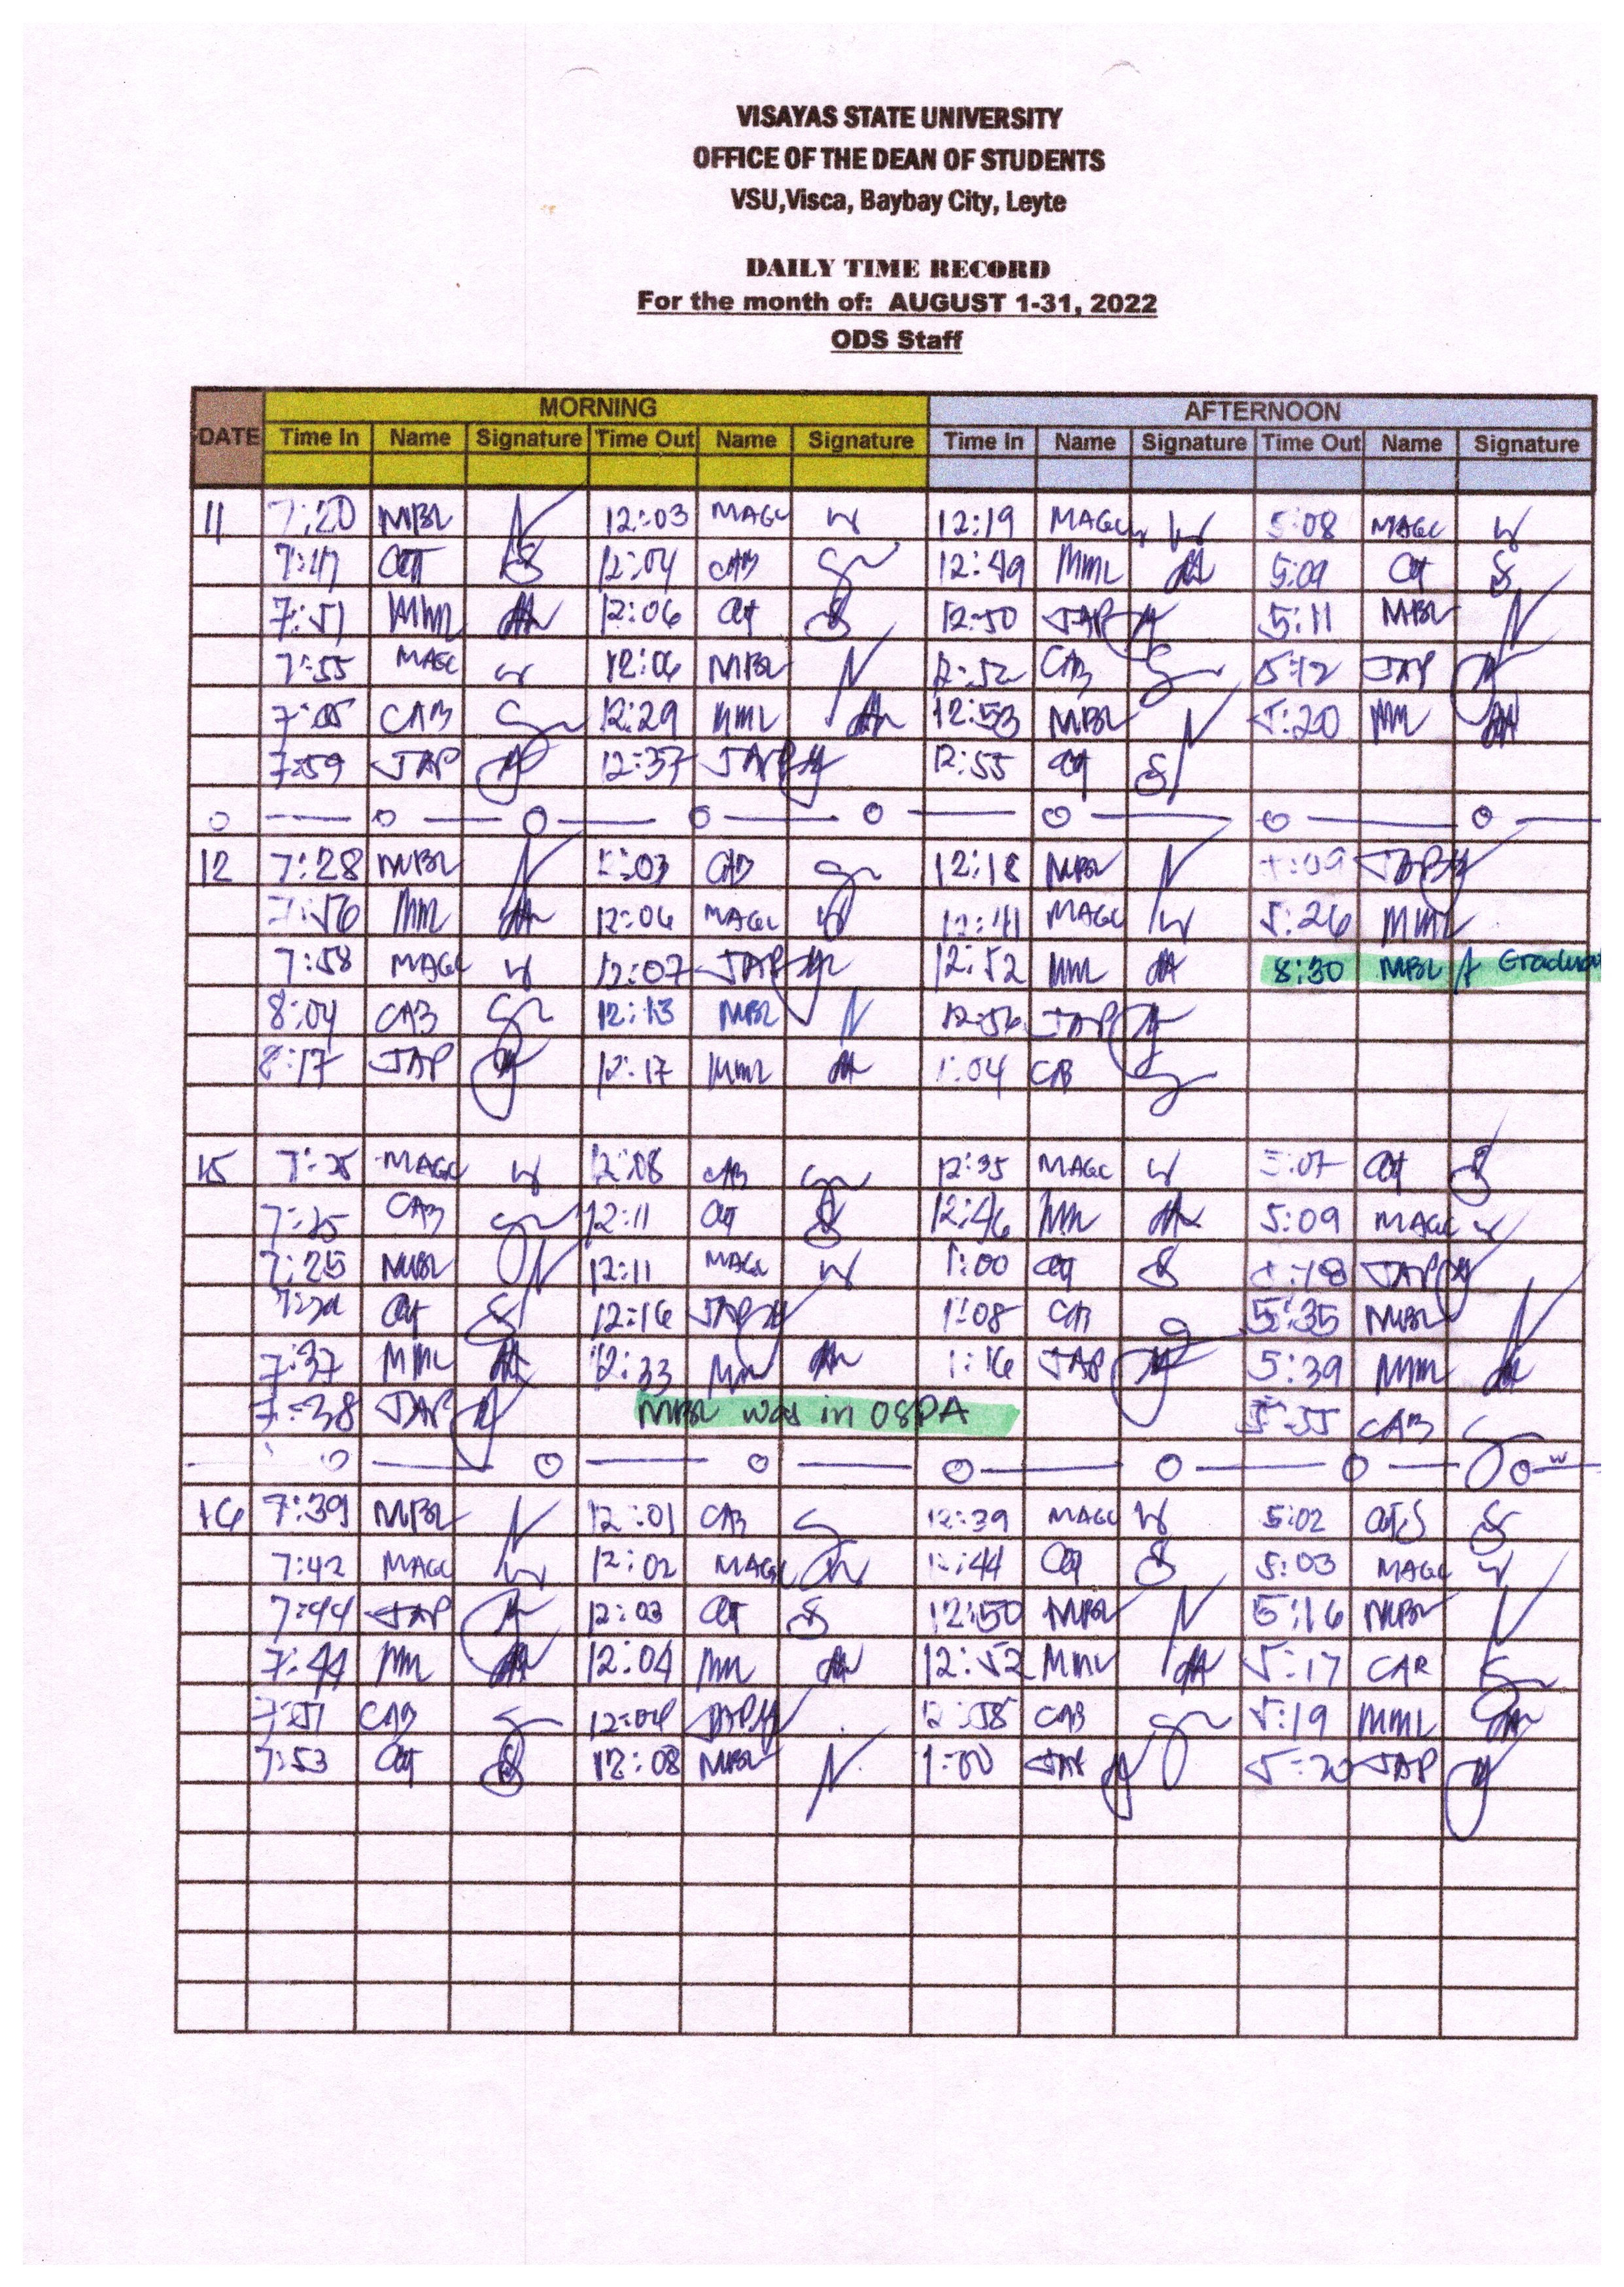 VISAYAS STATE UNIVERSITY
OFFICE OF THE DEAN OF STUDENTS
VSU,Visca, Baybay City, Leyte
DAILY TIME RECORD
For the month of: AUGUST 1-31, 2022
ODS Staff
DATE MORNING AFTERNOON
Time In Name Signature Time Out Name Signature Time In Name Signature Time Out Name Signature
11 7:20 MBL 12:03 MAGC 12:19 MAGC 5:08 MAGC
7:47 12:04 CAB 12:49 MML 5:09
7:51 MML 12:06 12:50 JAP 5:11 MBL
7:55 MAGC 12:06 MBL 12:52 CAB 5:12 JAP
CAB 12:29 MML 12:53 MBL 5:20
7:59 JAP 12:37 JAP 12:55
12 7:28 MBL 12:03 CAB 12:18 MBL JAP
7:56 MML 12:06 MAGC 12:41 MAGC 5:26 MML
7:58 MAGC 12:07 JAP 12:52 MML 8:30 MBL
8:04 CAB 12:13 MBL 12:56 JAP
8:17 JAP 12:17 MML 1:04 CAB
15 MAGC 12:08 CAB 12:35 MAGC 5:07
7:25 CAB 12:11 12:46 5:09 MAGC
7:25 MBL 12:11 MAGC 1:00 JAP
12:16 JAP 1:08 CAB 5:35 MBL
7:37 MML 12:33 1:16 JAP 5:39 MML
7:38 JAP MBL was in OSPA 5:55 CAB
16 7:39 MBL 12:01 CAB 12:39 MAGC 5:02
7:42 MAGC 12:02 MAGC 12:44 5:03 MAGC
7:44 JAP 12:03 12:50 MBL 5:16 MBL
7:44 12:04 12:52 MML 5:17 CAB
7:51 CAB 12:04 JAP 12:58 CAB 5:19 MML
7:53 12:08 MBL 1:00 JAP 5:20 JAP